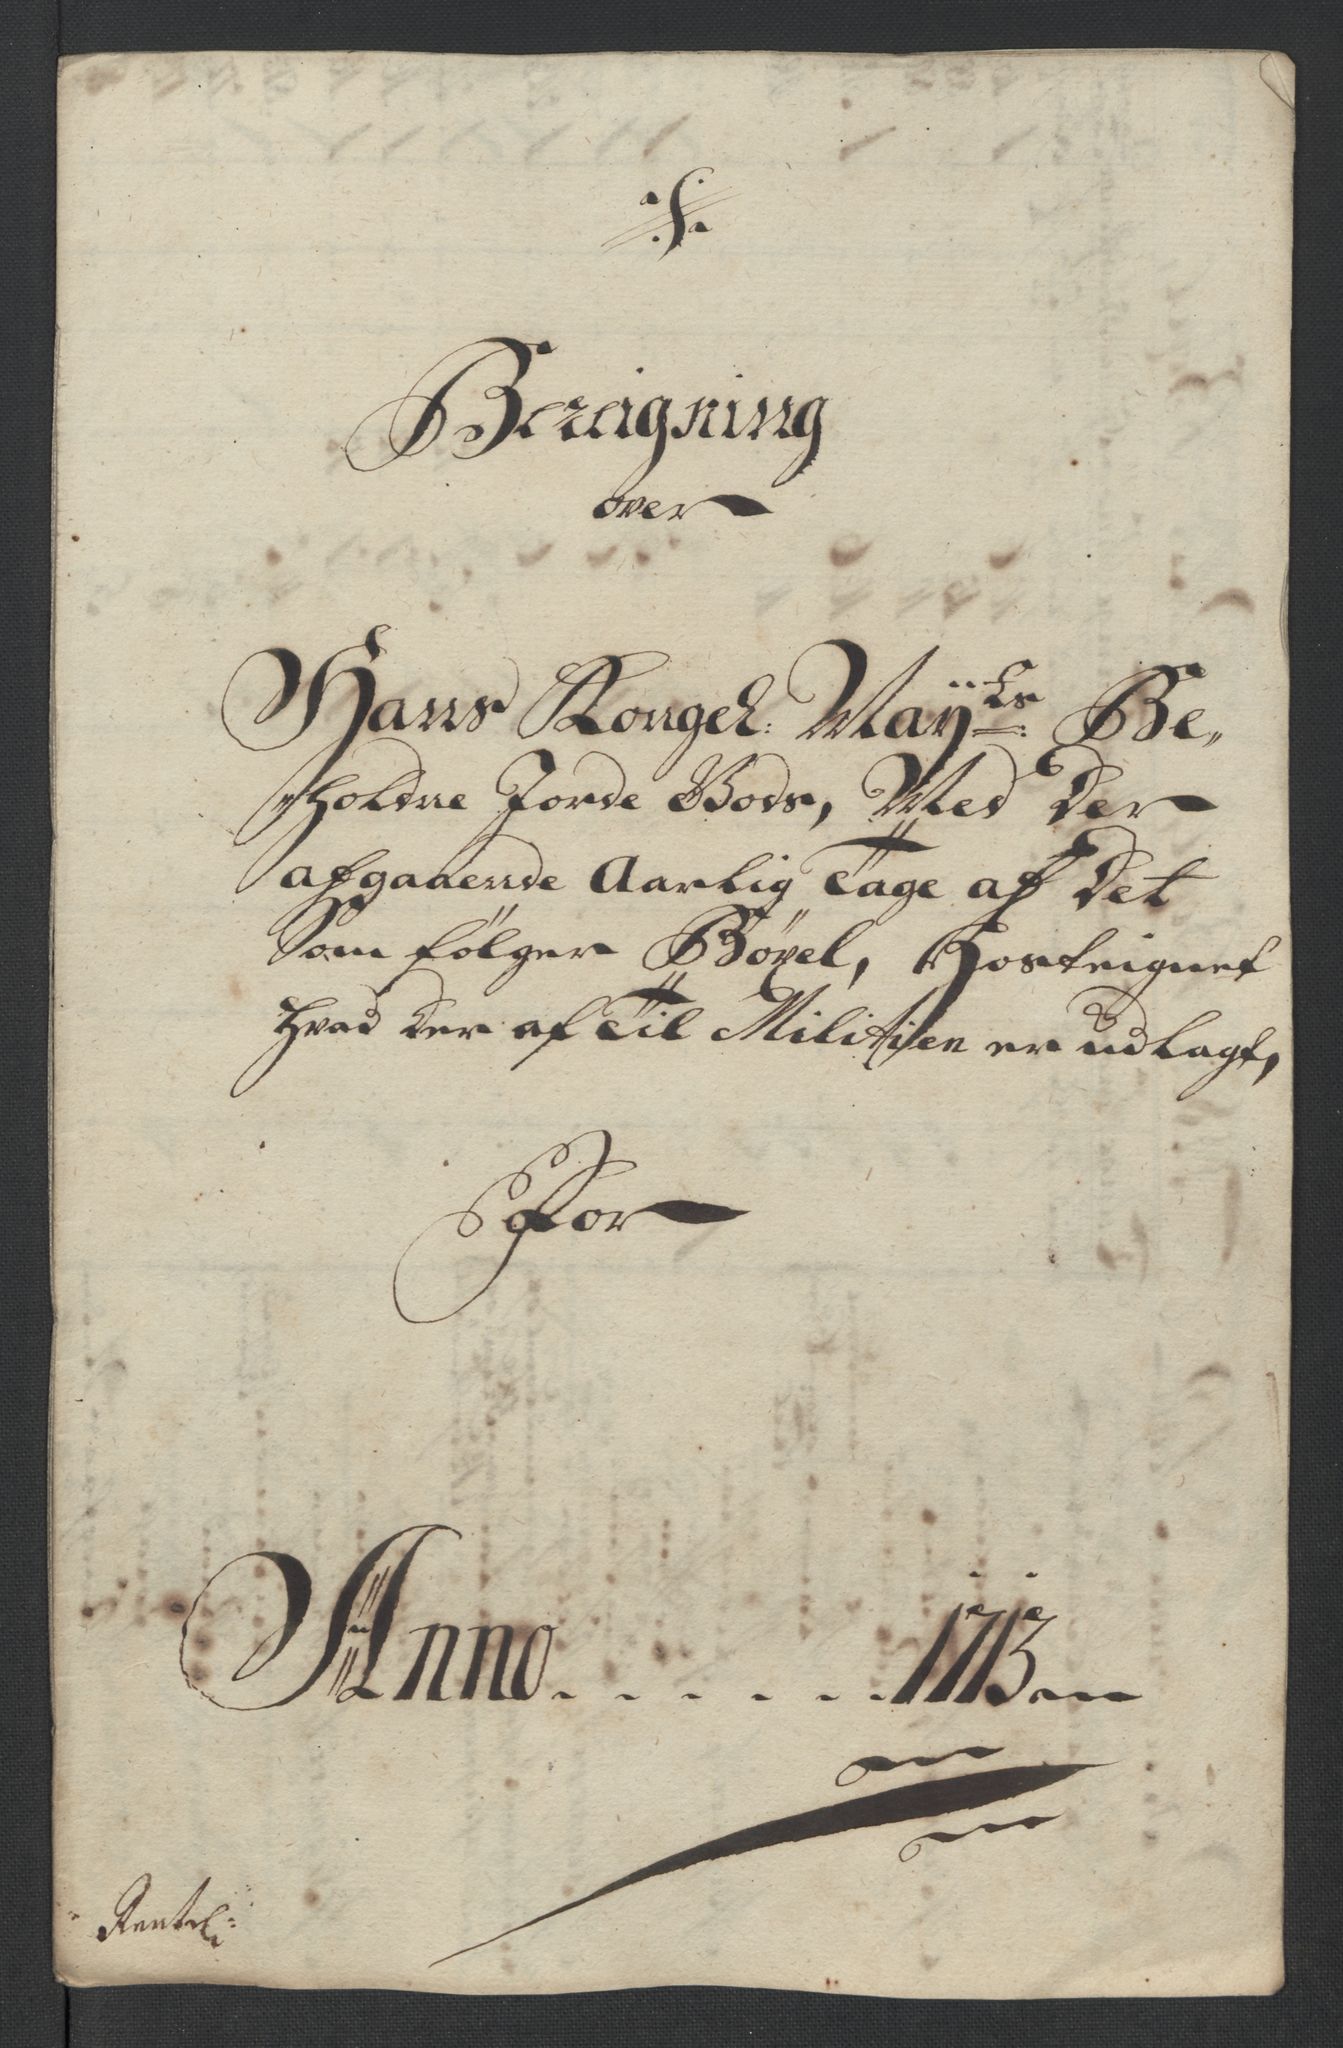 Bereigning
over
Hans Kongel: Mayts: Be„
holdne Jorde Gods, Med Der
afgaaende Aarlig Tage af Det
Som følger Böxel, Hosteignet
hvad der af til Militien er udlagt,
For
Anno . . . . . . 1713
Rentel: